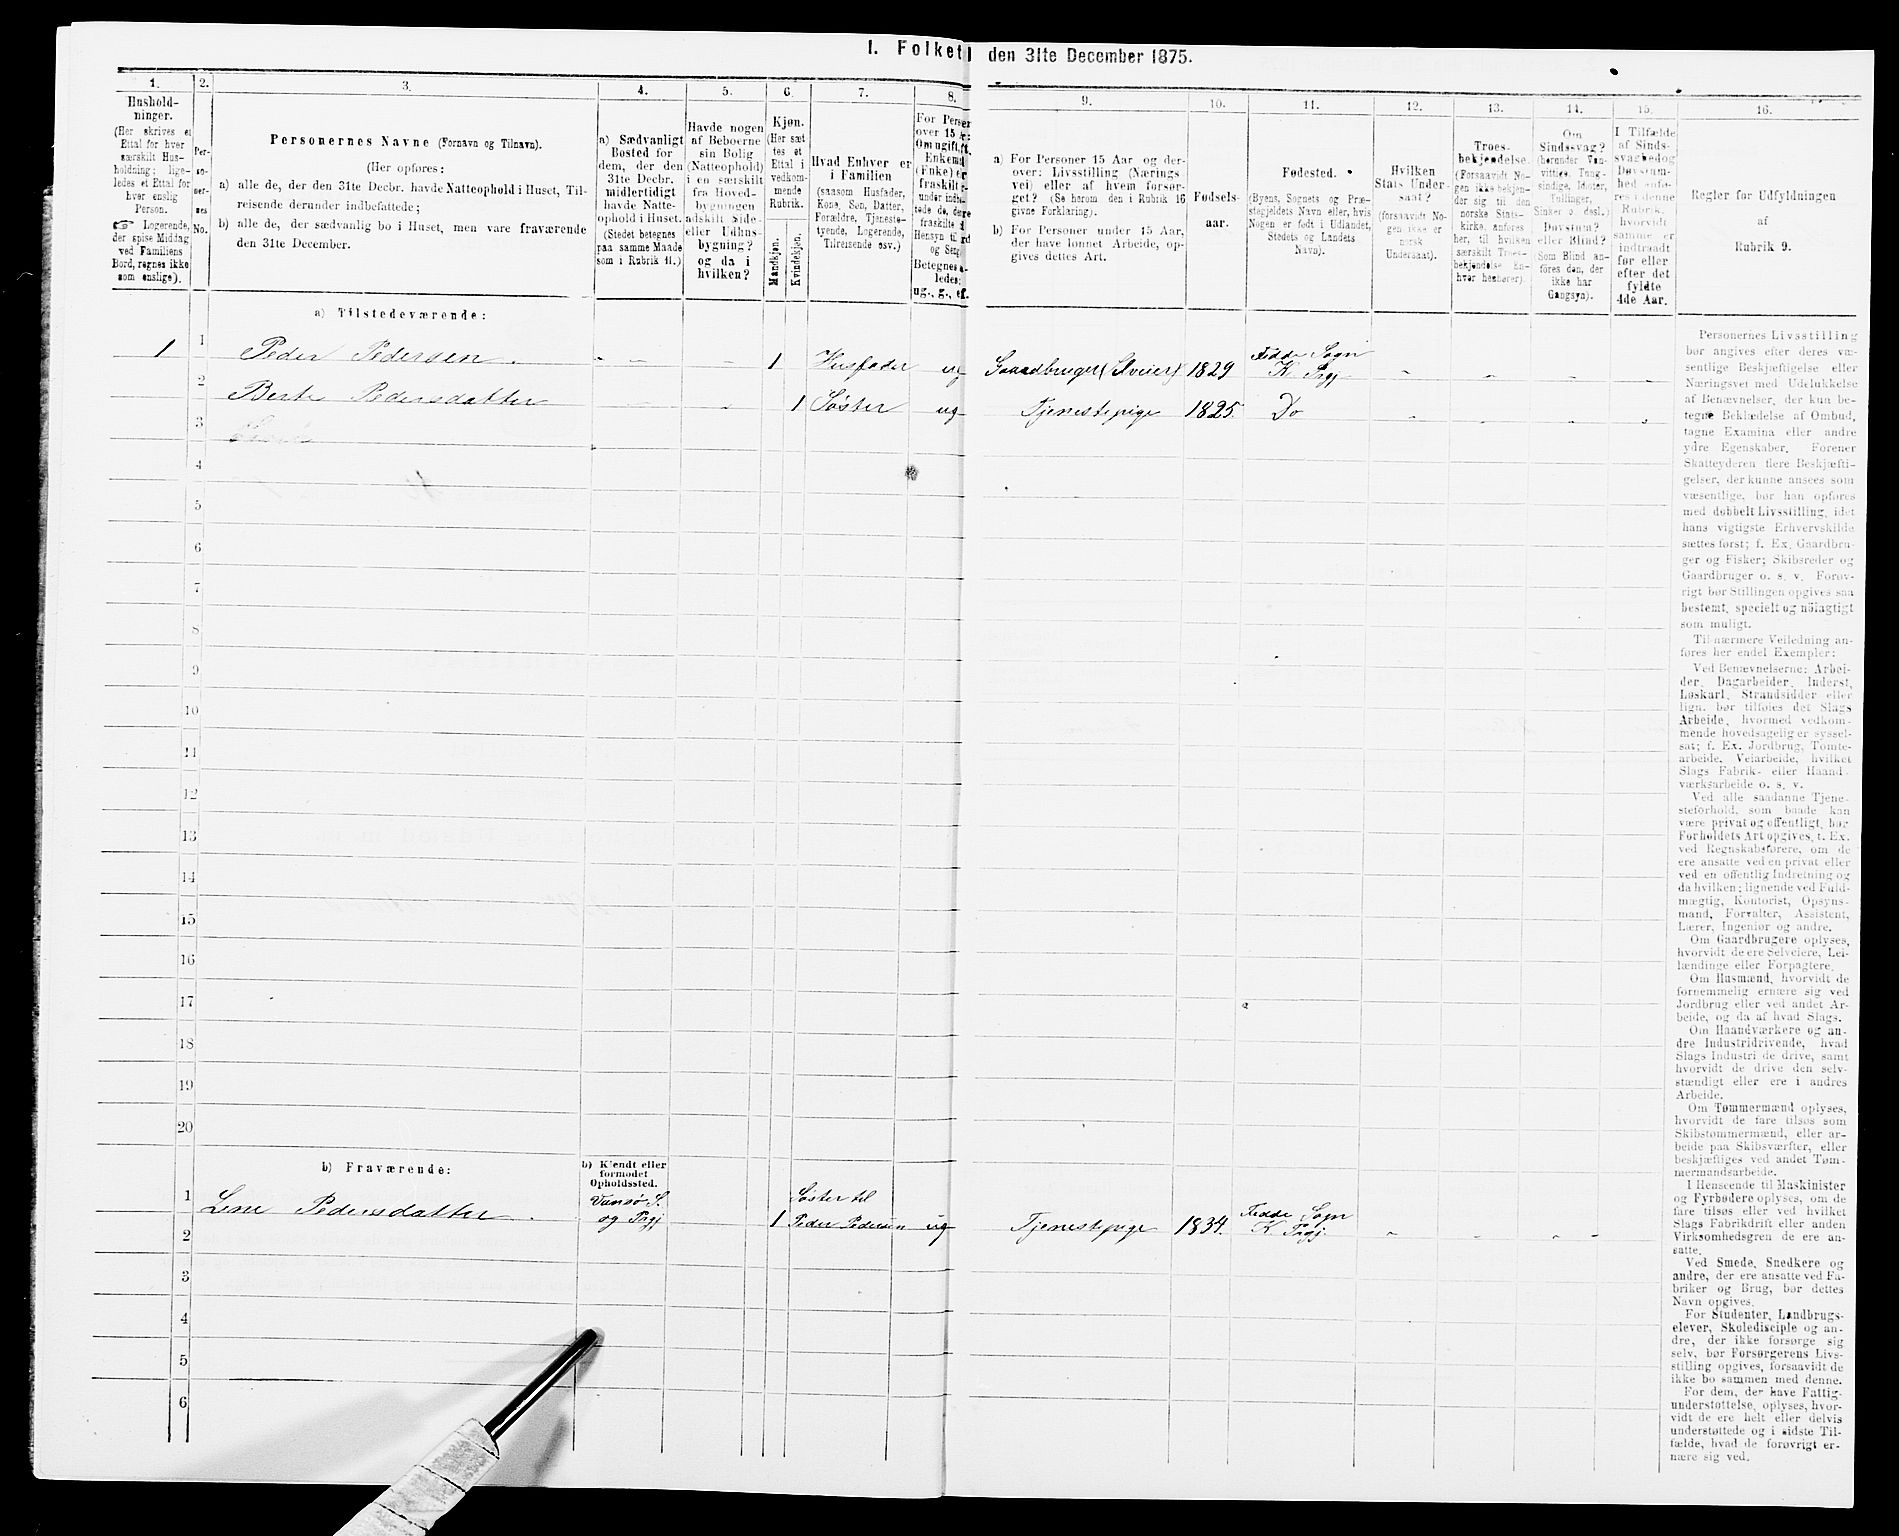 I. Folket
den 31te December 1875.
1.
Hushold-
ninger.
(Her skrives et
Ettal for hver
særskilt Hus-
holdning; lige-
ledes et Ettal for
hver enslig
Person.
☞ Logerende,
der spise Middag
ved Familiens
Bord, regnes ikke
som enslige).
2.
Per-
so-
ner-
nes
No.
3.
Personernes Navne (Fornavn og Tilnavn).
(Her opføres:
a) alle de, der den 31te Decbr. havde Natteophold i Huset, Til-
reisende derunder indbefattede;
b) alle de, der sædvanlig bo i Huset, men vare fraværende
den 31te December.
4.
a) Sædvanligt
Bosted for
dem, der den
31te Decbr.
midlertidigt
havde Natte-
ophold i Huset.
(Stedet betegnes
paa samme Maade
som i Rubrik 11.)
5.
Havde nogen
af Beboerne
sin Bolig
(Natteophold)
i en særskilt
fra Hoved-
bygningen
adskilt Side-
eller Udhus-
bygning?
og da i
hvilken?
6.
Kjøn.
(Her sæt
tes et
Ettal i
vedkom-
mende
Rubrik.
Mandkjøn.
Kvindekjøn.
7.
Hvad Enhver er
i Familien
(saasom Husfader,
Kone, Søn, Datter,
Forældre, Tjeneste-
tyende, Logerende,
Tilreisende osv.)
8.
For Person
over 15
Om ugift,
Enkemand
(Enke)
fraskilt
Betegnes
ledes:
ug., g., ef.
9.
a) For Personer 15 Aar og der-
over: Livsstilling (Nærings
vei) eller af hvem forsør-
get? (Se herom den i Rubrik 16
givne Forklaring).
b) For Personer under 15 Aar,
der have lønnet Arbeide, op-
gives dettes Art.
10.
Fødsels-
aar.
11.
Fødested.
(Byens, Sognets og Præ-
stegjeldets Navn eller, hvis
Nogen er født i Udlandet,
Stedets og Landets
Navn).
12.
Hvilken
Stats Under-
saat?
(forsaavidt No-
gen ikke er
norsk
Undersaat).
13.
Troes-
bekjendelse.
(Forsaavidt No-
gen ikke bekjen-
der sig til den
norske Stats-
kirke, anføres
her, til hvilken
særskilt Troes-
bekjendelse En-
hver henhører).
14.
Om
Sindssvag?
(herunder Van-
vittige, Tung-
sindige, Idioter,
Tullinger,
Sinker o desl.)
Døvstum?
eller Blind?
(Som Blind an-
føres den, der
ikke har
Gangsyn).
15.
I Tilfælde
af Sinds-
svaghed og
Døvstum-
hed anfø-
res i denne
Rubrik,
hvorvidt
samme er
indtraadt
før eller
efter det
fyldte
4de Aar.
16.
Regler for Udfyldningen
af
Rubrik 9.
a) Tilstedeværende:
1 1 Peder Pedersen. 1 Husfader ug Gaardbruger (Selveier) 1829 Fedde Sogn
K. Prgj
2 Berte Pedersdatter 1 Søster ug Tjenestepige 1825. Do
3
4
5
6
7
8
9
10
11
12
13
14
15
16
17
18
19
20
b) Fraværende:
b) Kjendt eller
formodet
Opholdssted.
1 Lene Pedersdatter. Vansø S.
og Prgj 1 Søster til
Peder Pedersen ug Tjenestepige 1834. Fedde Sogn
K Prgj.
2
3
4
5
6
Personernes Livsstilling
bør angives efter deres væ-
sentlige Beskjæftigelse eller
Næringsvei med Udelukkelse
af Benævnelser, der kun be-
tegne Beklædelse af Ombud,
tagne Examina eller andre
ydre Egenskaber. Forener
Skatteyderen flere Beskjæfti-
gelser, der kunne ansees som
væsentlige, bør han opføres
med dobbelt Livsstilling, idet
hans vigtigste Erhvervskilde
sættes først; f. Ex. Gaardbru-
ger og Fisker; Skibsreder og
Gaardbruger o. s. v. Forøv-
rigt bør Stillingen opgives saa
bestemt, specielt og nöiagtigt
som muligt.
Til nærmere Veiledning an-
føres her endel Exempler:
Ved Benævnelserne: Arbei-
der, Dagarbeider, Inderst,
Løskarl, Strandsidder eller
lign. bør tilføies det Slags
Arbeide, hvormed vedkom-
mende hovedsagelig er syssel-
sat; f. Ex. Jordbrug, Tomte-
arbeide, Veiarbeide, hvilket
Slags Fabrik- eller Haand-
værksarbeide o. s. v.
Ved alle saadanne Tjene-
steforhold, som baade kan
være privat og offentligt, bør
Forholdets Art opgives, t. Ex.
ved Regnskabsførere, om de
ere ansatte ved en privat eller
ved en offentlig Indretning og
da hvilken; lignende ved Fuld-
mægtig, Kontorist, Opsyns-
mand, Forvalter, Assistent,
Lærer, Ingeniør og andre.
Om Gaardbrugere oplyses,
hvorvidt de ere Selveiere, Lei-
lændinge eller Forpagtere.
Om Husmænd, hvorvidt de
fornemmelig ernære sig ved
Jordbrug eller ved andet Ar-
beide, og da af hvad Slags.
Om Haandværkere og an-
dre Industridrivende, hvad
Slags Industri de drive, samt
hvorvidt de drive den selv-
stændigt eller ere i andres
Arbeide.
Om Tømmermænd oplyses,
hvorvidt de fare tilsøs som
Skibstømmermænd, eller ar-
beide paa Skibsværfter, eller
beskjæftiges ved andet Tøm-
mermandsarbeide.
I Henseende til Maskinister
og Fyrbødere oplyses, om de
fare tilsøs eller ved hvilket
Slags Fabrikdrift eller anden
Virksomhedsgren de ere an-
satte.
Ved Smede, Snedkere og
andre, der ere ansatte ved Fa-
briker og Brug, bør dettes
Navn opgives.
For Studenter, Landbrugs-
elever, Skoledisciple og an-
dre, der ikke forsørge sig
selv, bør Forsørgerens Livs-
stilling opgives, forsaavidt de
ikke bo sammen med denne.
For dem, der have Fattig-
understøttelse, oplyses, hvor-
vidt de ere helt eller delvis
understøttede og i sidste Til-
fælde, hvad de forøvrigt er-
nære sig ved.